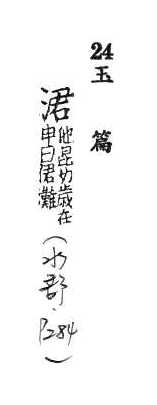 24玉篇
涒他昆切歲在
申曰涒灘
(水部·P284)